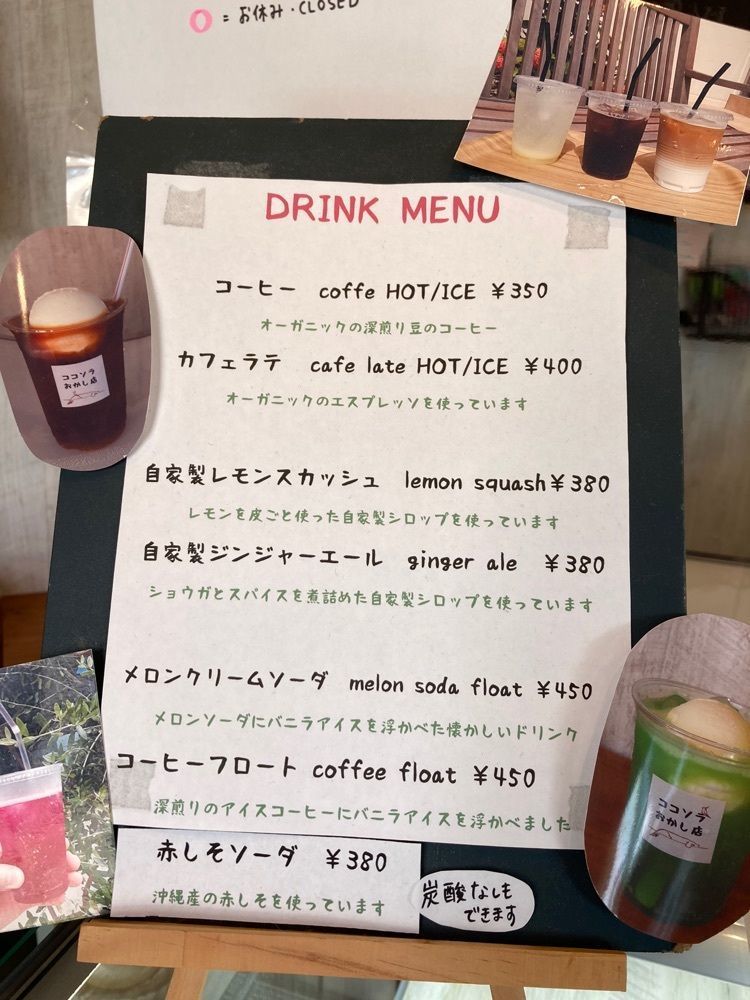 = お休み・CLOSED
DRINK MENU
コーヒー coffe HOT/ICE ¥350
オーガニックの深煎り豆のコーヒー
カフェラテ cafe late HOT/ICE ¥400
オーガニックのエスプレッソを使っています
自家製レモンスカッシュ lemon squash¥380
レモンを皮ごと使った自家製シロップを使っています
自家製ジンジャーエール ginger ale ¥380
ショウガとスパイスを煮詰めた自家製シロップを使っています
メロンクリームソーダ melon soda float ¥450
メロンソーダにバニラアイスを浮かべた懐かしいドリンク
コーヒーフロート coffee float ¥450
深煎りのアイスコーヒーにバニラアイスを浮かべました
赤しそソーダ ¥380
沖縄産の赤しそを使っています
炭酸なしも
できます
ココソラ
おかし店
ココソラ
おかし店